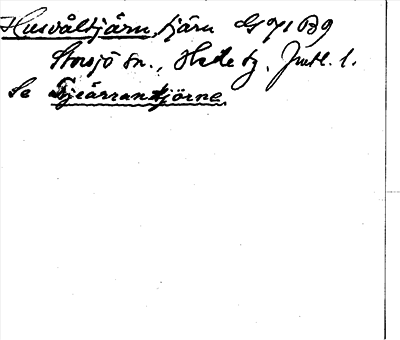 Husvåltjärn, tjärn G 71 B9
Storsjö sn., Hede tg. Jmtl. l.
Se Fjeärrantjörne.